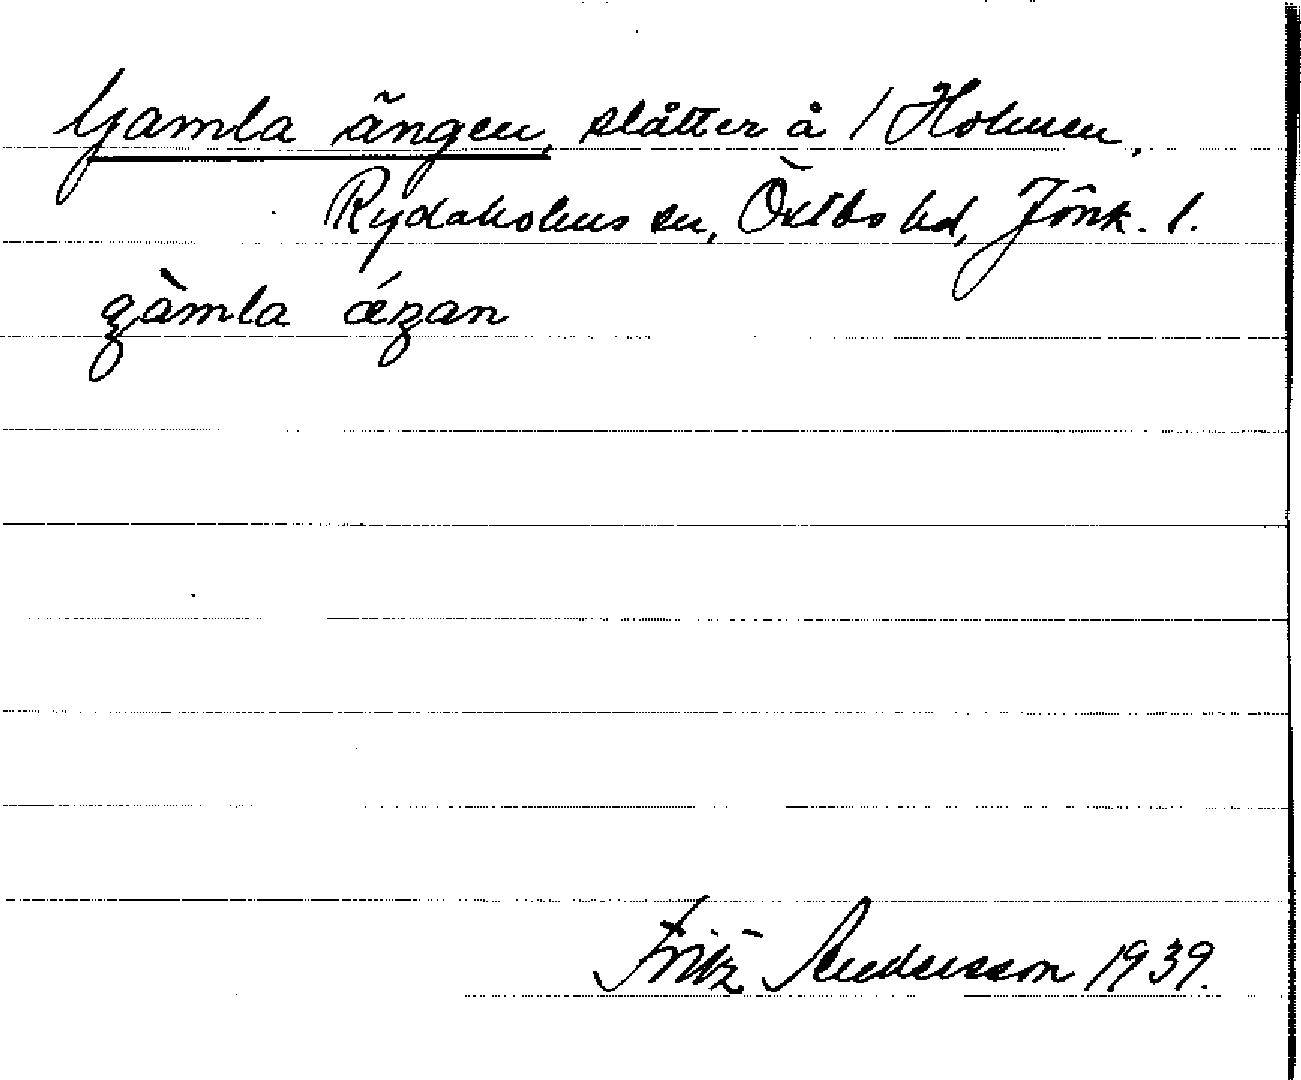 Gamla ängen, slåtter å / Holmen,
Rydaholms sn, Östbo hd, Jönk. l.
gàmla ǽŋan
Fritz Andersson 1939.